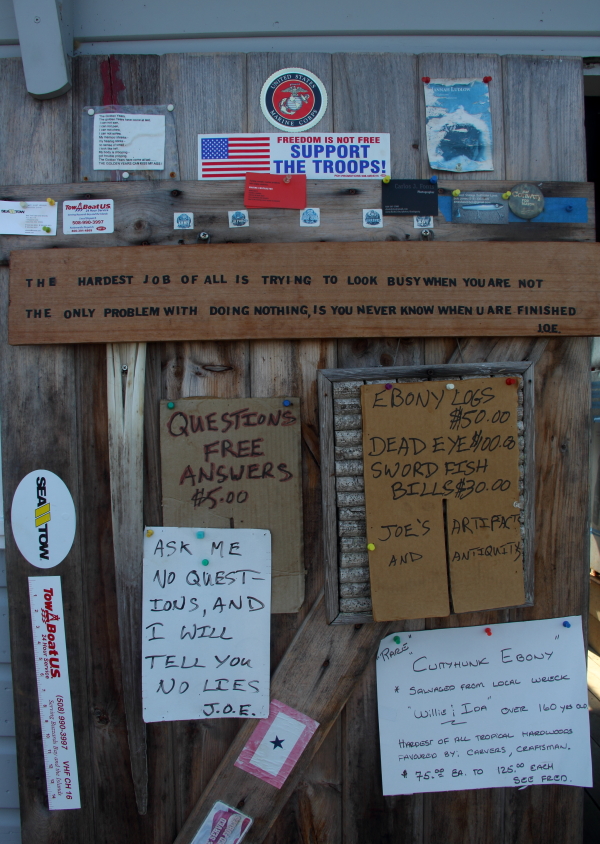 UNITED STATES
MARINE CORPS
FREEDOM IS NOT FREE
SUPPORT
THE TROOPS!
SEA TOW
TOWBOATUS
508-990-3997
THE HARDEST JOB OF ALL IS TRYING TO LOOK BUSY WHEN YOU ARE NOT
THE ONLY PROBLEM WITH DOING NOTHING, IS YOU NEVER KNOW WHEN U ARE FINISHED
JOE
QUESTIONS
FREE
ANSWERS
$5.00
EBONY LOGS
$50.00
DEAD EYE $100.00
SWORD FISH
BILLS $30.00
JOE'S ARTIFACTS
AND ANTIQUITY
SEA TOW
ASK ME
NO QUEST-
IONS, AND
I WILL
TELL YOU
NO LIES
J.O.E.
TOWBOATUS
24 Hour Service
(508) 990-3997 VHF CH 16
Serving Buzzards Bay and the Islands
"RARE"
CUTTYHUNK EBONY"
* SALVAGED FROM LOCAL WRECK
"WILLIE; IDA" OVER 160 YRS OLD
HARDEST OF ALL TROPICAL HARDWOODS
FAVOURED BY; CARVERS, CRAFTSMAN.
$75.00 EA. TO 125.00 EACH
SEE FRED.